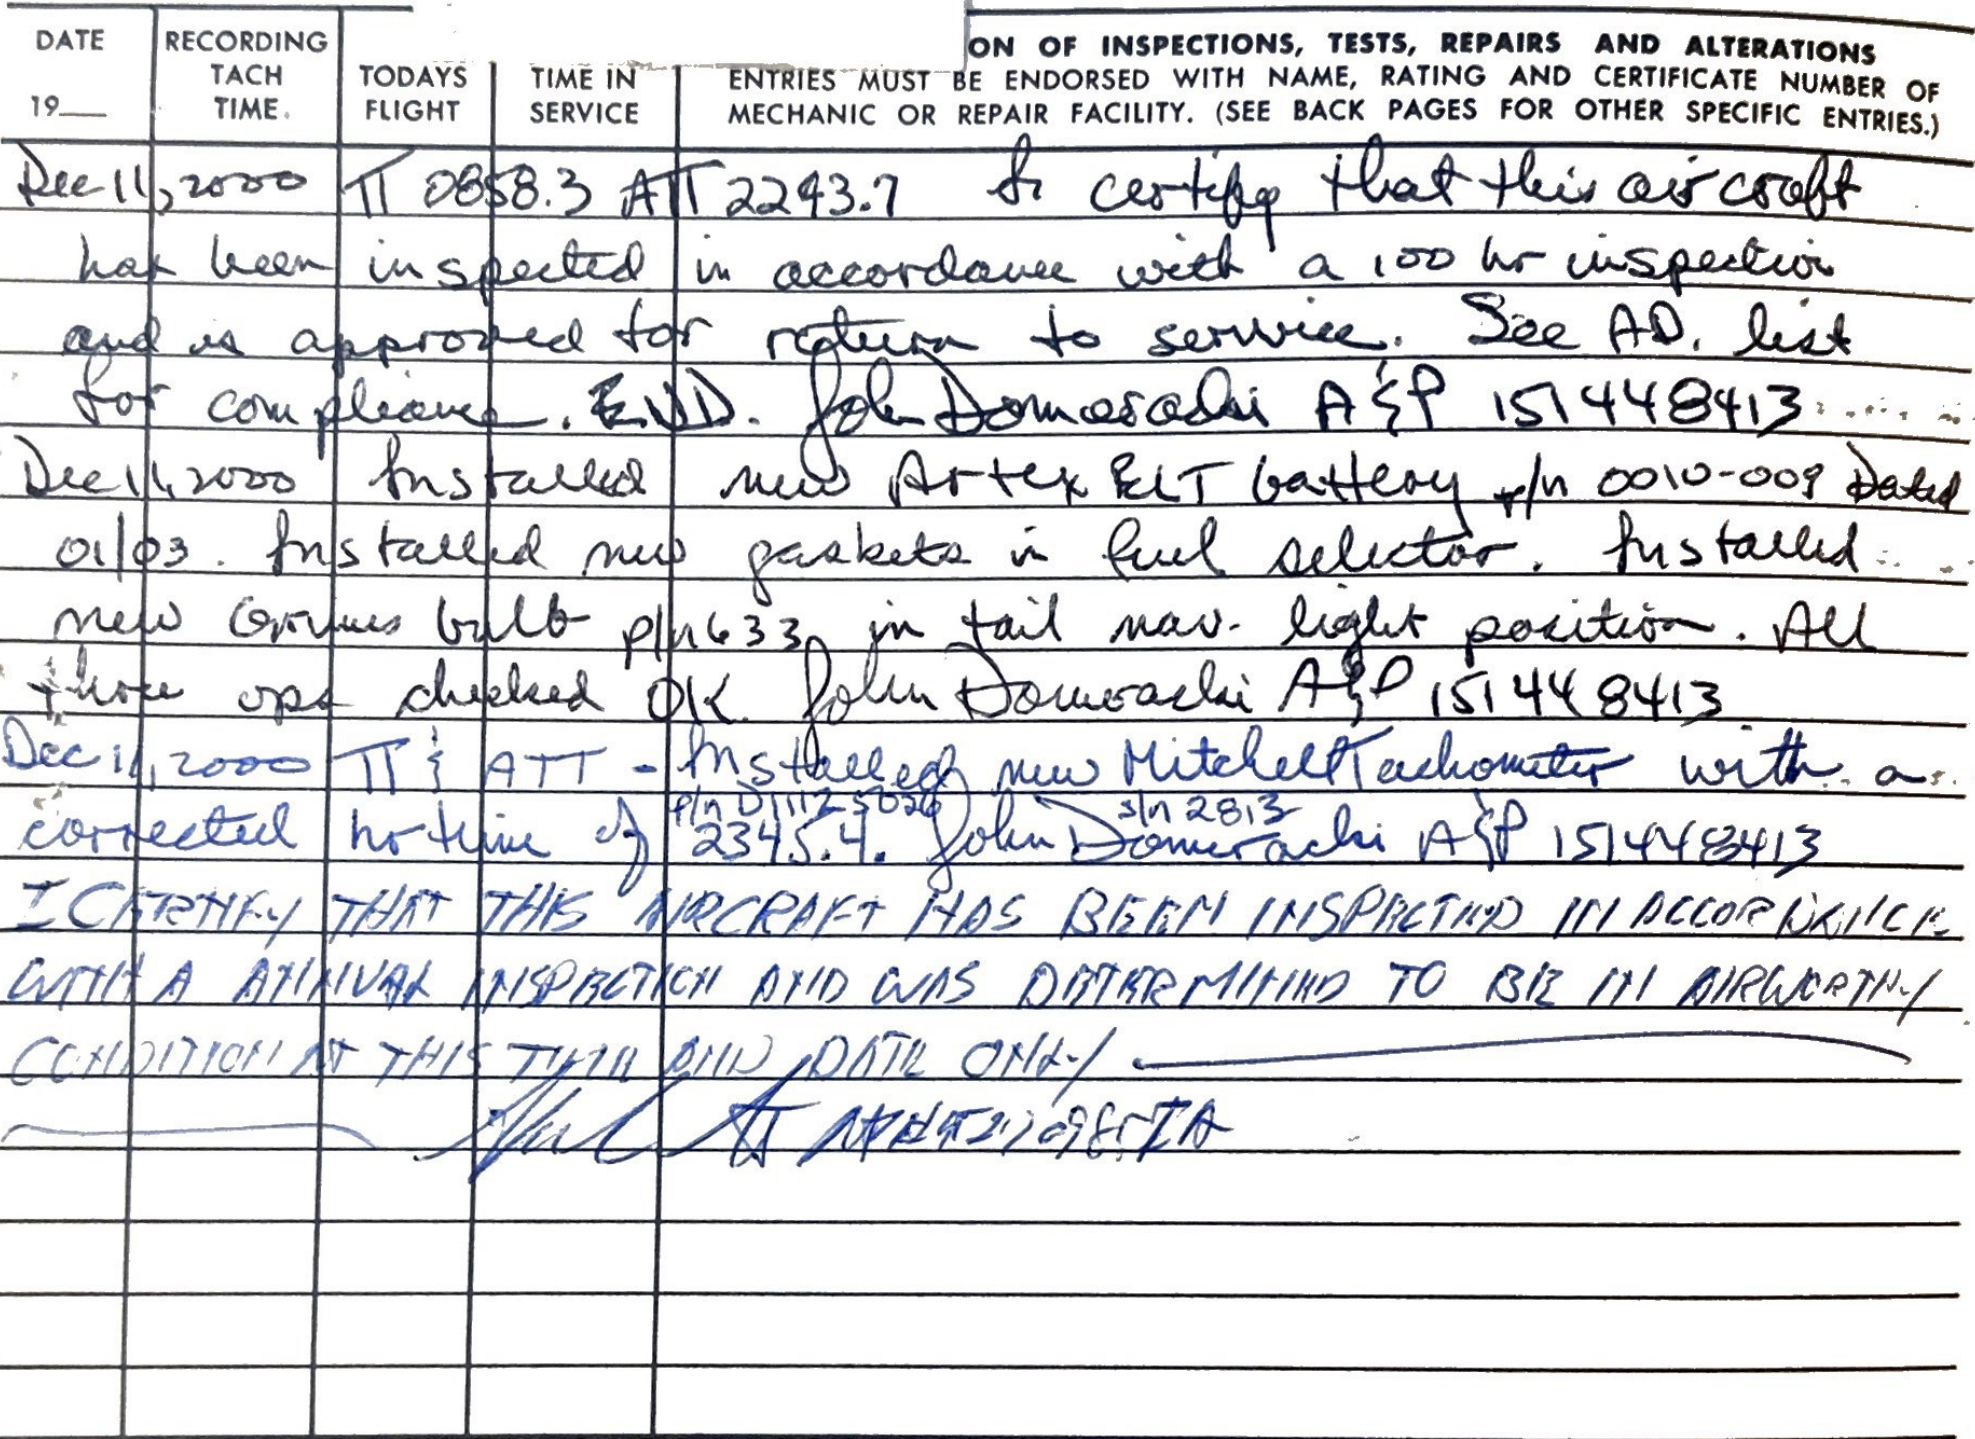 DATE
19__
RECORDING
TACH
TIME.
TODAYS
FLIGHT
TIME IN
SERVICE
ON OF INSPECTIONS, TESTS, REPAIRS AND ALTERATIONS
ENTRIES MUST BE ENDORSED WITH NAME, RATING AND CERTIFICATE NUMBER OF
MECHANIC OR REPAIR FACILITY. (SEE BACK PAGES FOR OTHER SPECIFIC ENTRIES.)
Dec 11, 2000 TT 0858.3 ATT 2243.7 to certify that this aircraft
has been inspected in accordance with a 100 hr inspection
and is approved for return to service. See AD. list
for compliance. END. John Domoracki A&P 151448413
Dec 11, 2000 Installed new Artex ELT battery p/n 0010-009 Dated
01/03. Installed new gaskets in fuel selector. Installed
new Grimes bulb p/n 633 in tail nav. light position. All
those ops checked OK. John Domoracki A&P 151448413
Dec 11, 2000 TT & ATT - Installed new Mitchell Tachometer with a
p/n D1112-5026 s/n 2813
corrected hr time of 2345.4. John Domoracki A&P 151448413
I CERTIFY THAT THIS AIRCRAFT HAS BEEN INSPECTED IN ACCORDANCE
WITH A ANNUAL INSPECTION AND WAS DETERMINED TO BE IN AIRWORTHY
CONDITION AT THIS TIME AND DATE ONLY
IA